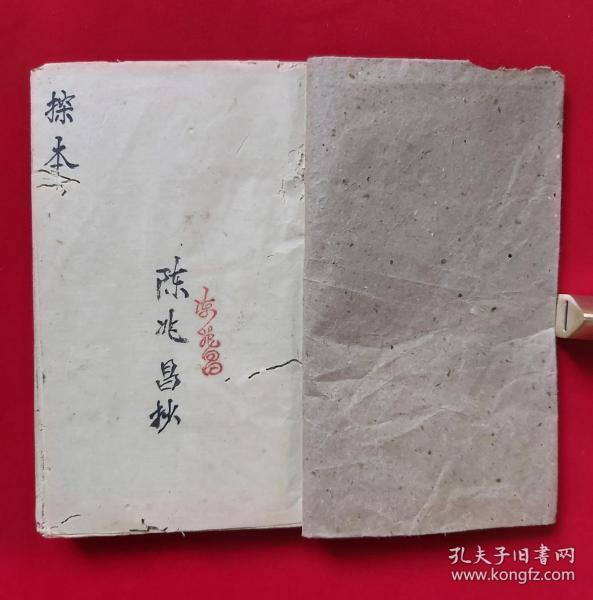 探本
陈兆昌抄
陈兆昌
孔夫子旧书网
www.kongfz.com